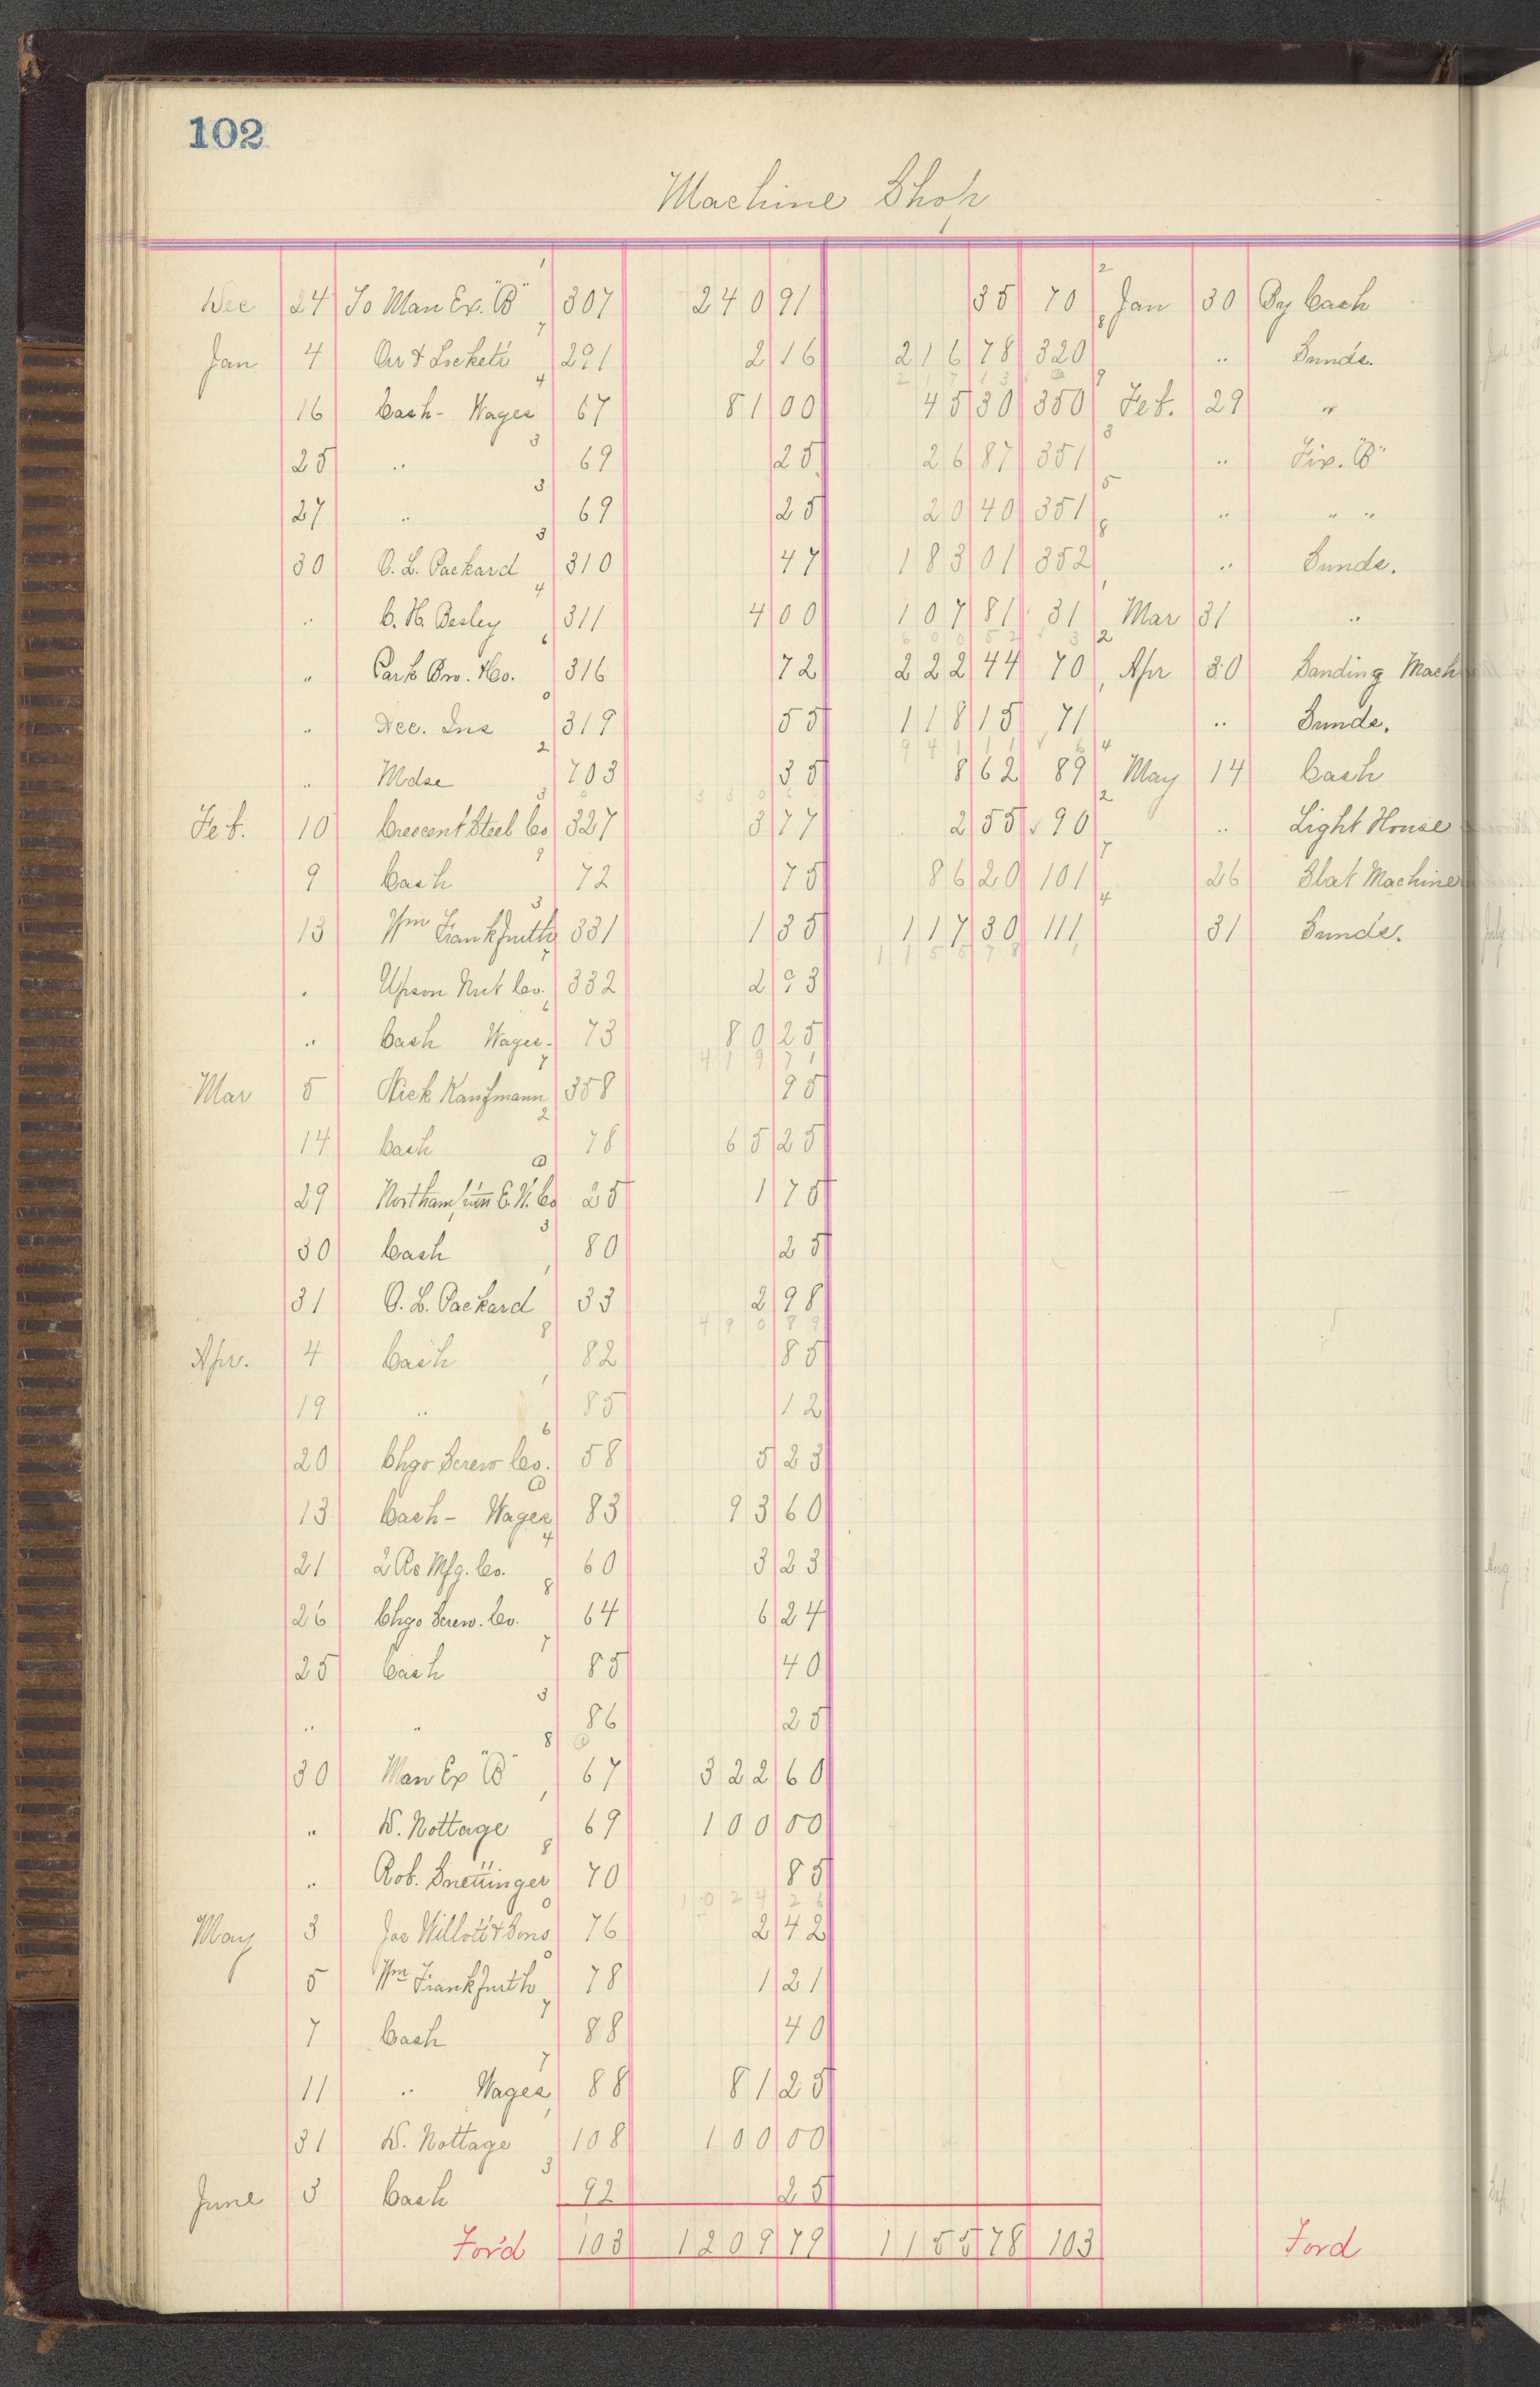 102
Machine Shop
Dec 24 To Man Ex. "B" 307 240 91 35 70 Jan 30 By Cash
Jan 4 Orr & Lockett 291 2 16 216 78 320 " Sunds.
16 Cash - Wages 67 81 00 45 30 350 Feb. 29 "
25 " 69 25 26 87 351 " Fix. "B"
27 " 69 25 20 40 351 " " "
30 O. L. Packard 310 47 183 01 352 " Sunds.
" C. H. Besley 311 4 00 107 81 31 Mar 31 "
" Park Bro. & Co. 316 72 222 44 70 Apr 30 Sanding Mach
" Acc. Ins 319 55 118 15 71 " Sunds.
" Mdse 703 35 8 62 89 May 14 Cash
Feb. 10 Crescent Steel Co 327 3 77 2 55 90 " Light House
9 Cash 72 75 86 20 101 26 Slat Machine
13 Wm Frankfurth 331 1 35 117 30 111 31 Sunds.
" Upson Nut Co. 332 2 93
" Cash Wages - 73 80 25
419 71
Mar 5 Nick Kaufmann 358 95
14 Cash 78 65 25
29 E. W. Co 25 1 75
30 Cash 80 25
31 O. L. Packard 33 2 98
490 89
Apr. 4 Cash 82 85
19 " 85 12
20 Chgo Screw Co. 58 5 23
13 Cash - Wages 83 93 60
21 2 Rs Mfg. Co. 60 3 23
26 Chgo Screw. Co. 64 6 24
25 Cash 85 40
" " 86 25
30 Man Ex "B" 67 322 60
" D. Nottage 69 100 00
" Rob. 70 85
1024 26
May 3 Jas Willott & Sons 76 2 42
5 Wm Frankfurth 78 1 21
7 Cash 88 40
11 " Wages 88 81 25
31 D. Nottage 108 100 00
June 3 Cash 92 25
For'd 103 1209 79 1155 78 103 Ford